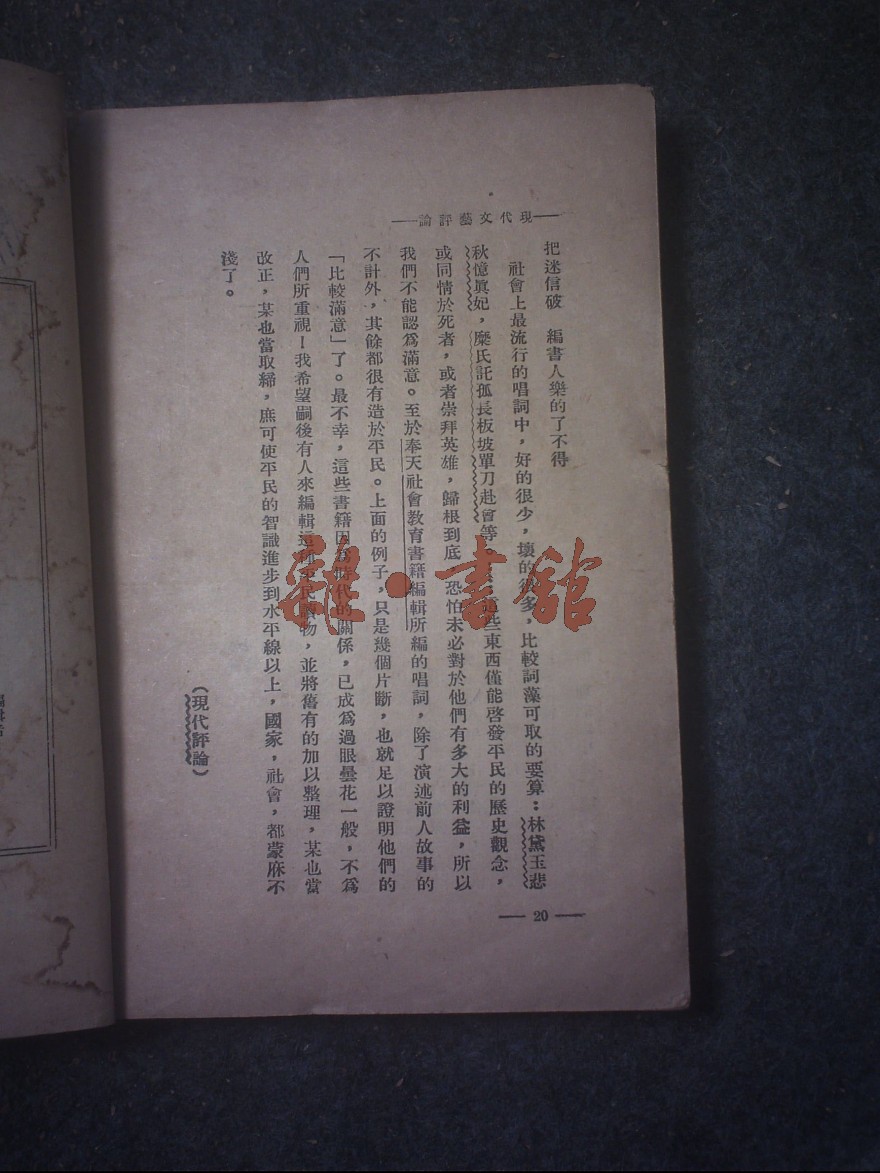 ——現代文藝評論——
把迷信破　編書人樂的了不得
社會上最流行的唱詞中，好的很少，壞的很多，比較詞藻可取的要算：林黛玉悲
秋憶眞妃，糜氏託孤長板坡單刀赴會等　　這些東西僅能啓發平民的歷史觀念，
或同情於死者，或者崇拜英雄，歸根到底，恐怕未必對於他們有多大的利益，所以
我們不能認爲滿意。至於奉天社會教育書籍編輯所編的唱詞，除了演述前人故事的
不計外，其餘都很有造於平民。上面的例子，只是幾個片斷，也就足以證明他們的
「比較滿意」了。最不幸，這些書籍因爲時代的關係，已成爲過眼曇花一般，不爲
人們所重視！我希望嗣後有人來編輯這種平民讀物，並將舊有的加以整理，某也當
改正，某也當取締，庶可使平民的智識進步到水平線以上，國家，社會，都蒙庥不
淺了。
（現代評論）
— 20 —
雜·書館